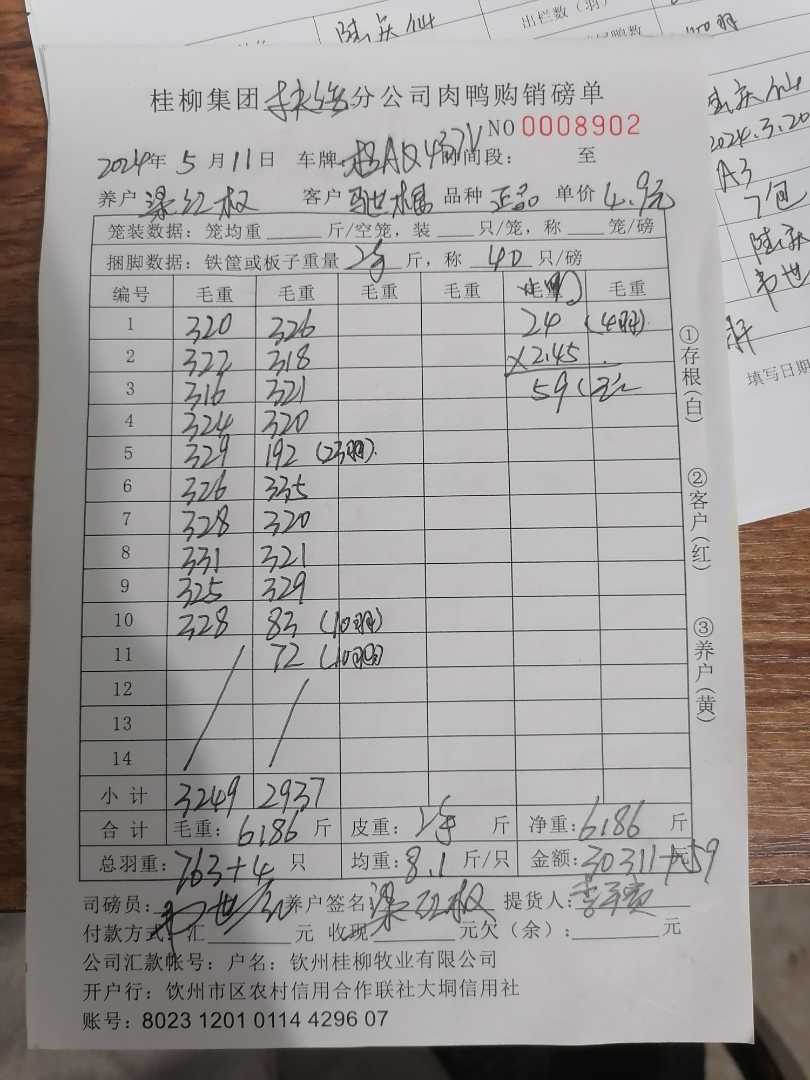 出栏数（羽）
陆庆仙
陆庆仙
2024.3.20
A3
7包
陆庆
韦世
填写日期
桂柳集团 分公司肉鸭购销磅单
NO 0008902
2024年 5 月 11 日 车牌 时间段： 至
养户 梁红权 客户 品种 正品 单价 4.9元
笼装数据：笼均重 斤/空笼，装 只/笼，称 笼/磅
捆脚数据：铁筐或板子重量 斤，称 40 只/磅
编号 毛重 毛重 毛重 毛重 毛重 毛重
1 320 326 24 (4羽)
2 322 318 ×2.45
3 316 321 59
4 324 320
5 329 192 (23羽)
6 326 335
7 328 320
8 331 321
9 325 329
10 328 83 (10羽)
11 72 (10羽)
12
13
14
小计 3249 2937
合计 毛重：6186 斤 皮重： 斤 净重：6186 斤
总羽重：763+4 只 均重：8.1 斤/只 金额：30311+59 元
司磅员： 养户签名：梁红权 提货人：
付款方式：汇 元 收现 元欠（余）： 元
公司汇款帐号：户名：钦州桂柳牧业有限公司
开户行：钦州市区农村信用合作联社大垌信用社
账号：8023 1201 0114 4296 07
①存根（白）
②客户（红）
③养户（黄）